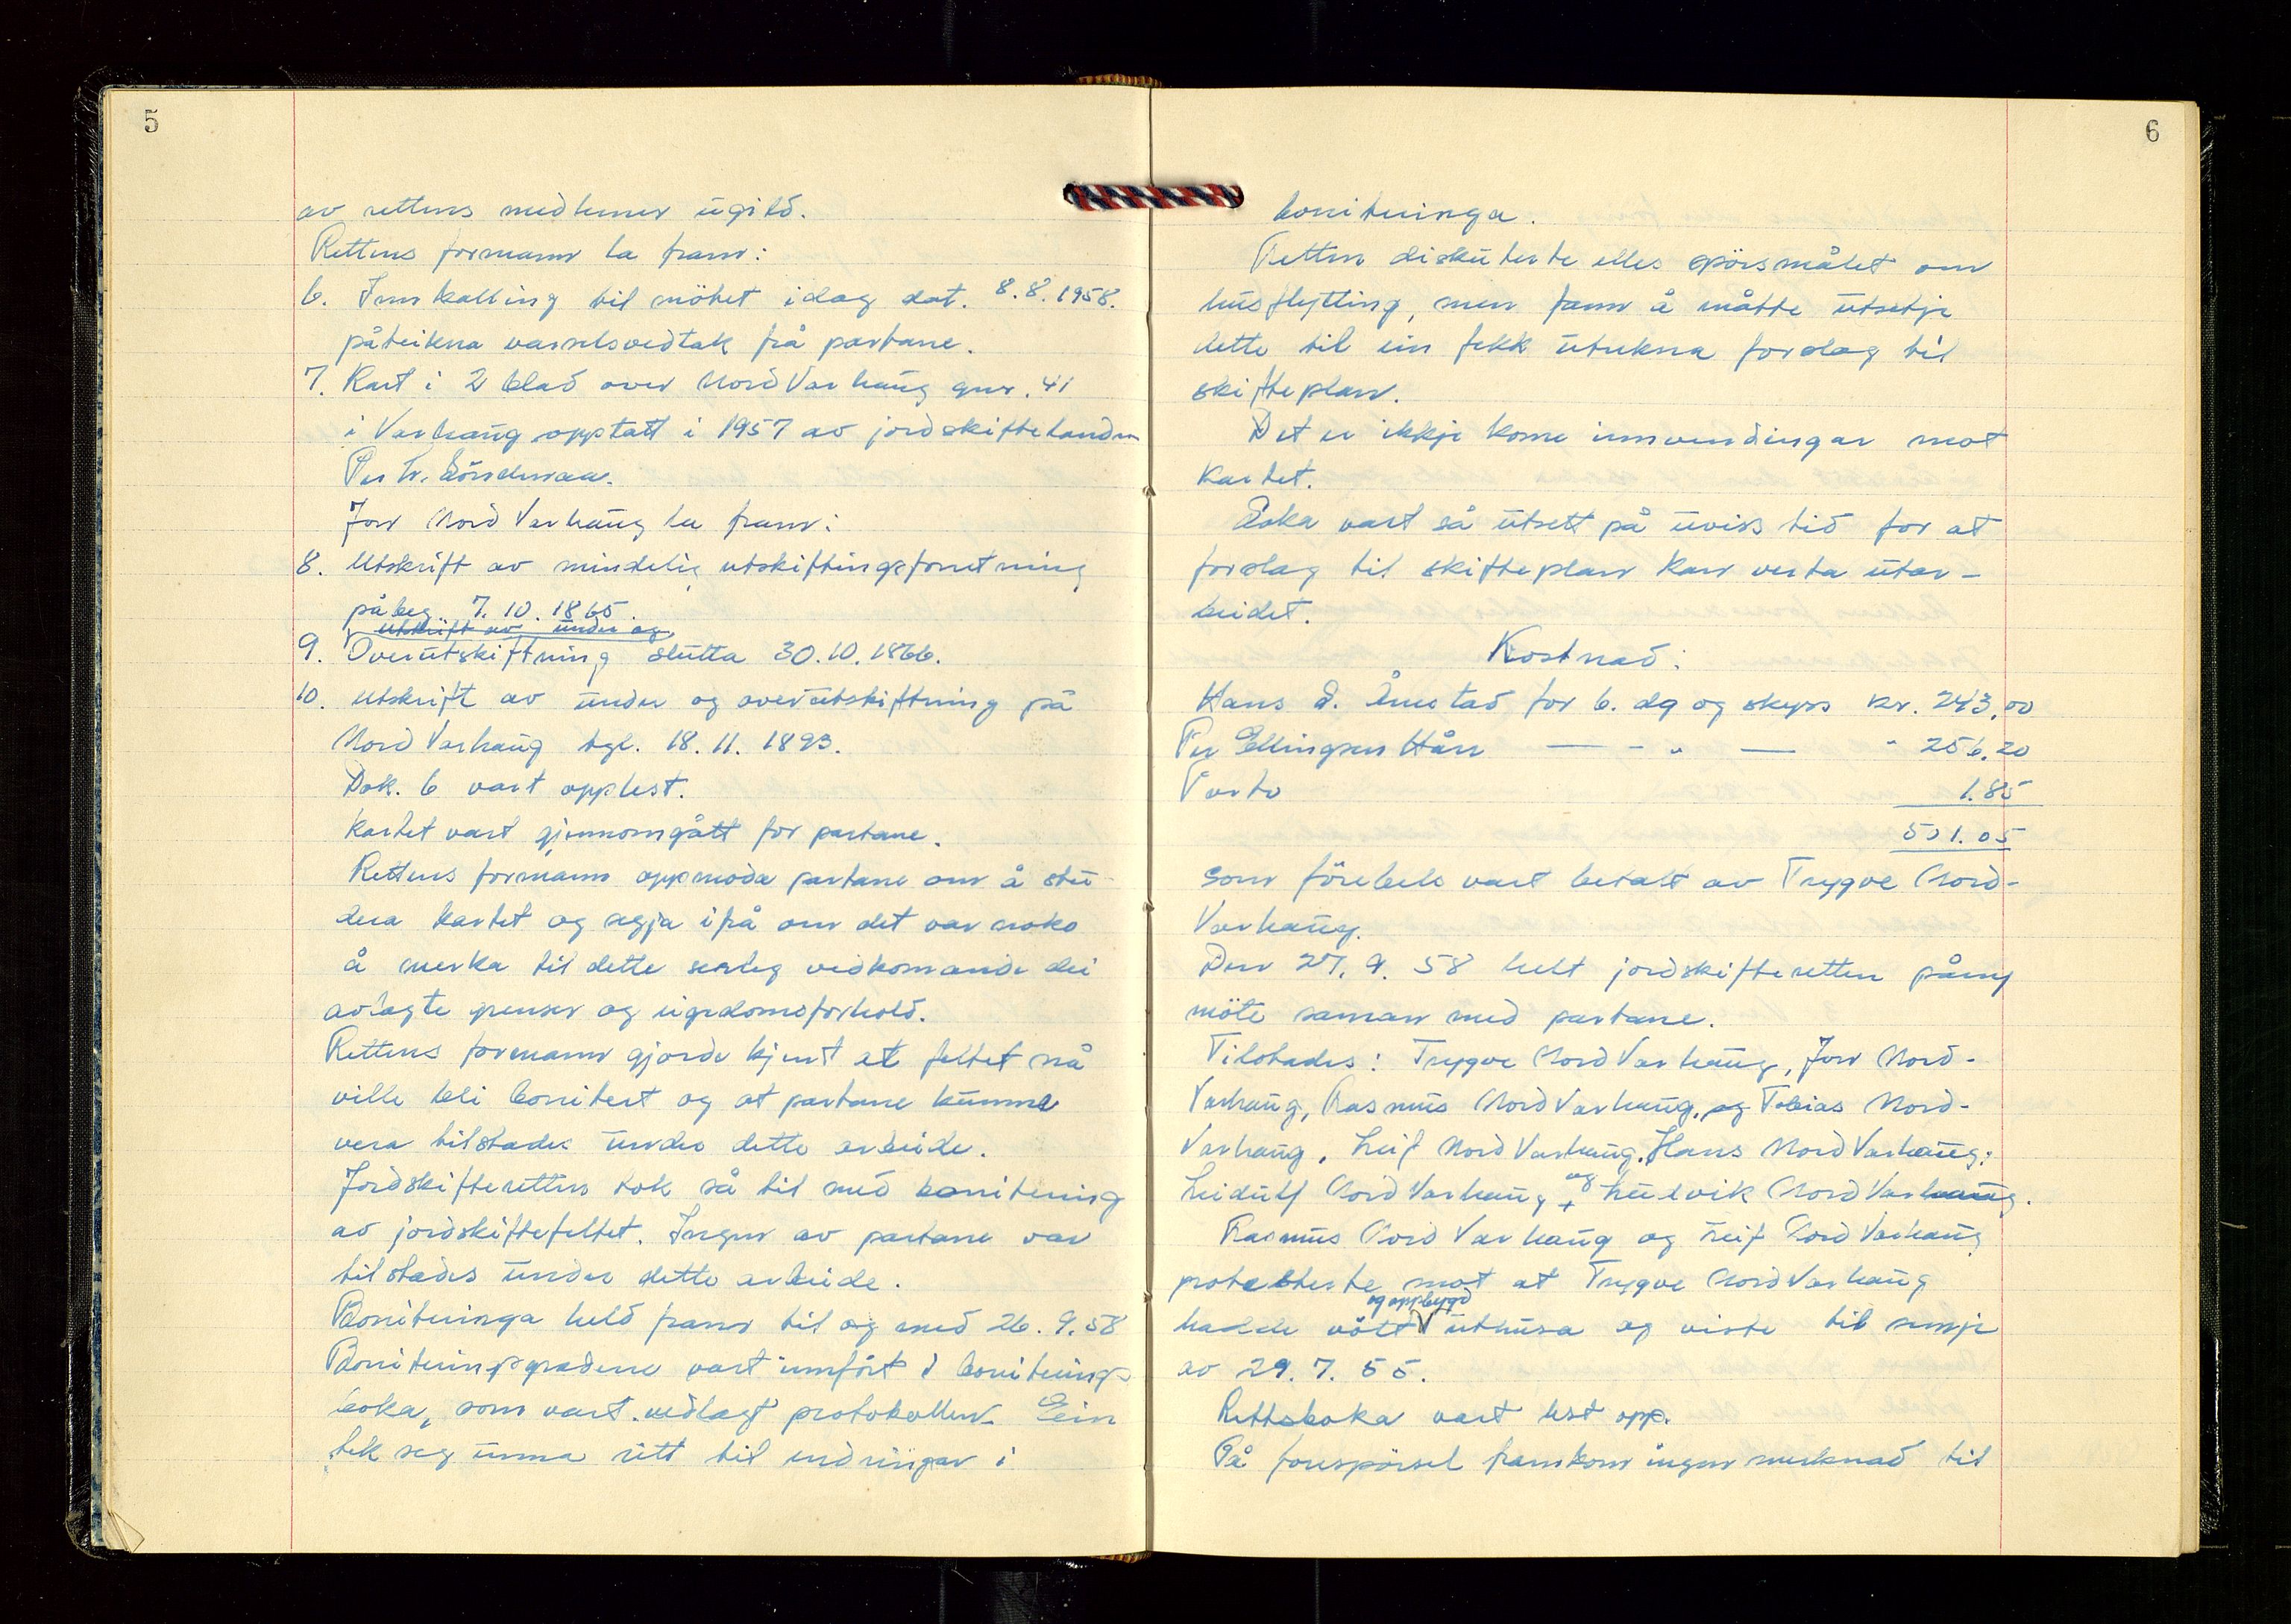 5
av rettens medlemer ugild.
Rettens formann la fram:
6. Innkalling til møtet idag dat. 8.8.1958.
påteikna varselsvedtak frå partane.
7. Kart i 2 blad over Nord Varhaug gnr. 41
i Varhaug opptatt i 1957 av jordskiftekandn
Per Tr.
Jon Nord Varhaug la fram:
8. Utskrift av mindelig utskiftingsforretning
påbeg. 7.10.1865.
utskrift av under og
9. Overutskiftning slutta 30.10.1866.
10. Utskrift av under og overutskiftning på
Nord Varhaug tgl. 18.11.1893.
Dok. 6 vart opplest.
Kartet vart gjennomgått for partane.
Rettens formann oppmoda partane om å stu-
dera kartet og segja ifrå om det var noko
å merka til dette serleg vedkomande dei
avlagte grenser og eigedomsforhold.
Rettens formann gjorde kjent at feltet nå
ville bli bonitert og at partane kunne
vera tilstades under dette arbeide.
Jordskifteretten tok så til med bonitering
av jordskiftefeltet. Ingen av partane var
tilstades under dette arbeide.
Boniteringa held fram til og med 26.9.58
Boniteringsgradene vart innført i bonitering-
boka, som vart vedlagt protokollen. Ein
tek seg unna rett til endringar i
6
boniteringa.
Retten diskuterte elles spörsmålet om
husflytting, men fann å måtte utsetja
dette til ein fekk utrekna forslag til
skifteplan.
Det er ikkje kome innvendingar mot
kartet.
Saka vart så utsett på uviss tid for at
forslag til skifteplan kan verta utar-
beidet.
Kostnad:
Hans S. Ånestad for 6. dg og skyss kr. 243,00
Per Ellingsen Hårr — - " — " 256.20
Porto 1.85
501.05
som förebels vart betalt av Trygve Nord-
Varhaug.
Den 27.9.58 helt jordskifteretten påny
möte saman med partane.
Tilstades: Trygve Nord Varhaug, Jon Nord-
Varhaug, Rasmus Nord Varhaug, og Tobias Nord-
Varhaug, Leif Nord Varhaug, Hans Nord Varhaug,
Leidulf Nord Varhaug + og Ludvik Nord Varhaug.
Rasmus Nord Varhaug og Leif Nord Varhaug
protesterte mot at Trygve Nord Varhaug
og oppbygd
hadde vølt V uthusa og viste til semje
av 29.7.55.
Rettsboka vart lest opp.
På forespörsel framkom ingen merknad til